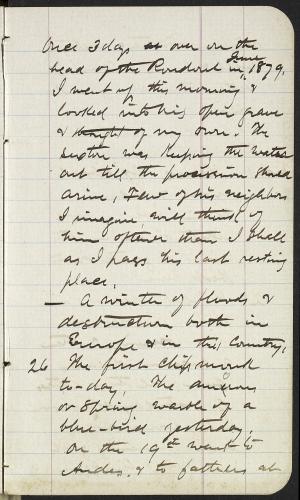 Once 3 days at over on the
head of the Rondout in, June 1879.
I went up this morning &
looked into his open grave
& thought of my own. The
sexton was keeping the water
out till the procession should
arrive, Few of his neighbors
I imagine will think of
him oftener than I shall
as I pass his last resting
place.
— A winter of floods &
destruction both in
Europe & in this Country.
26 The first chipmunk
to-day. The
or Spring warble of a
blue-bird yesterday.
On the 19th went to
Andes, & to fathers at